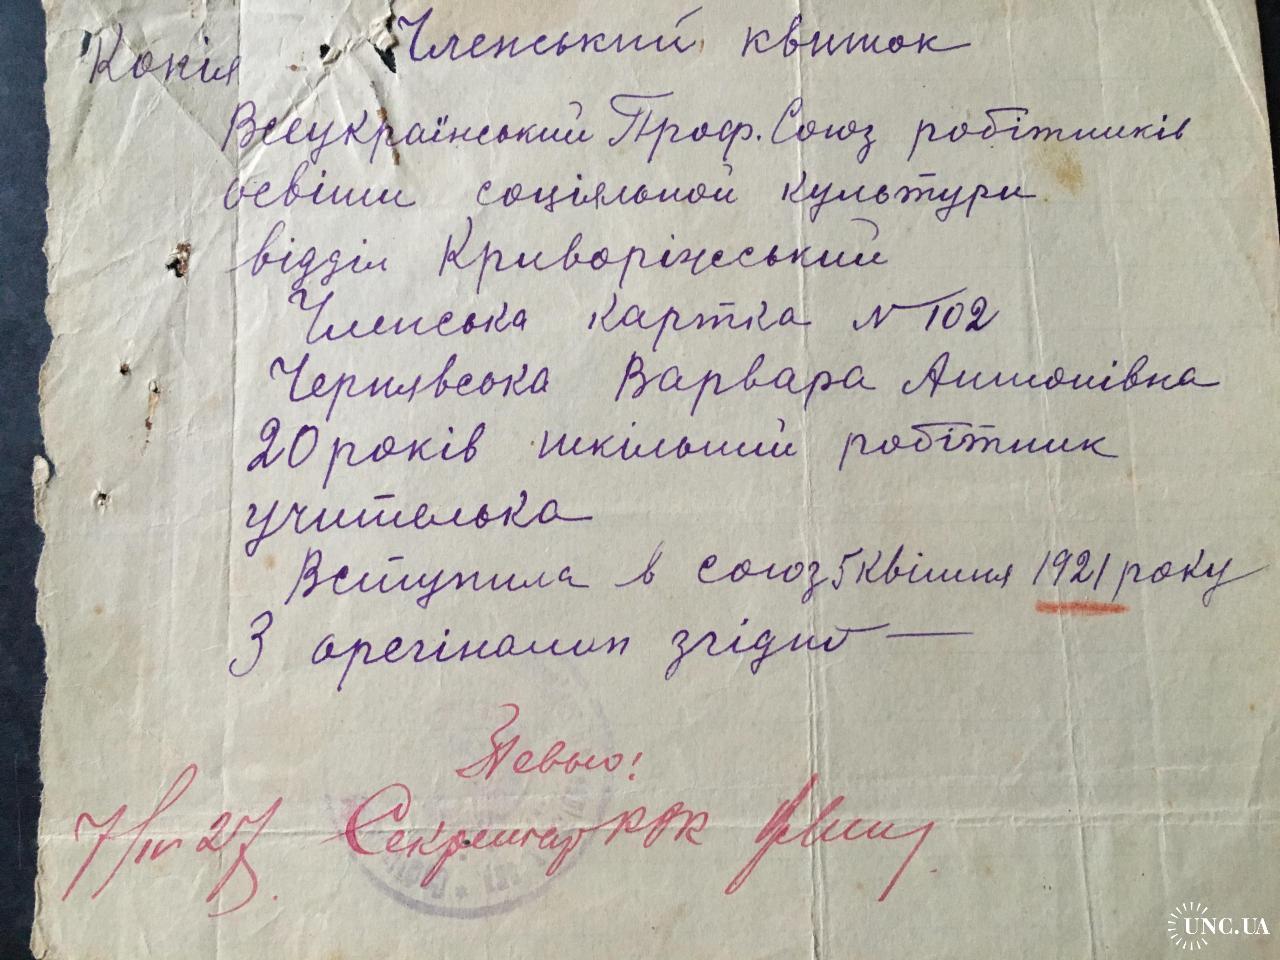 Копія Членський квиток
Всеукраїнський Проф. Союз робітників
освіти соціяльной культури
відділ Криворіжський
Членська картка N 102
Чернявська Варвара Антонівна
20 років шкільний робітник
учителька
Вступила в союз 5 квітня 1921 року
З орегіналом згідно —
Певно!
7/IV 27 Секретар РК
UNC.UA